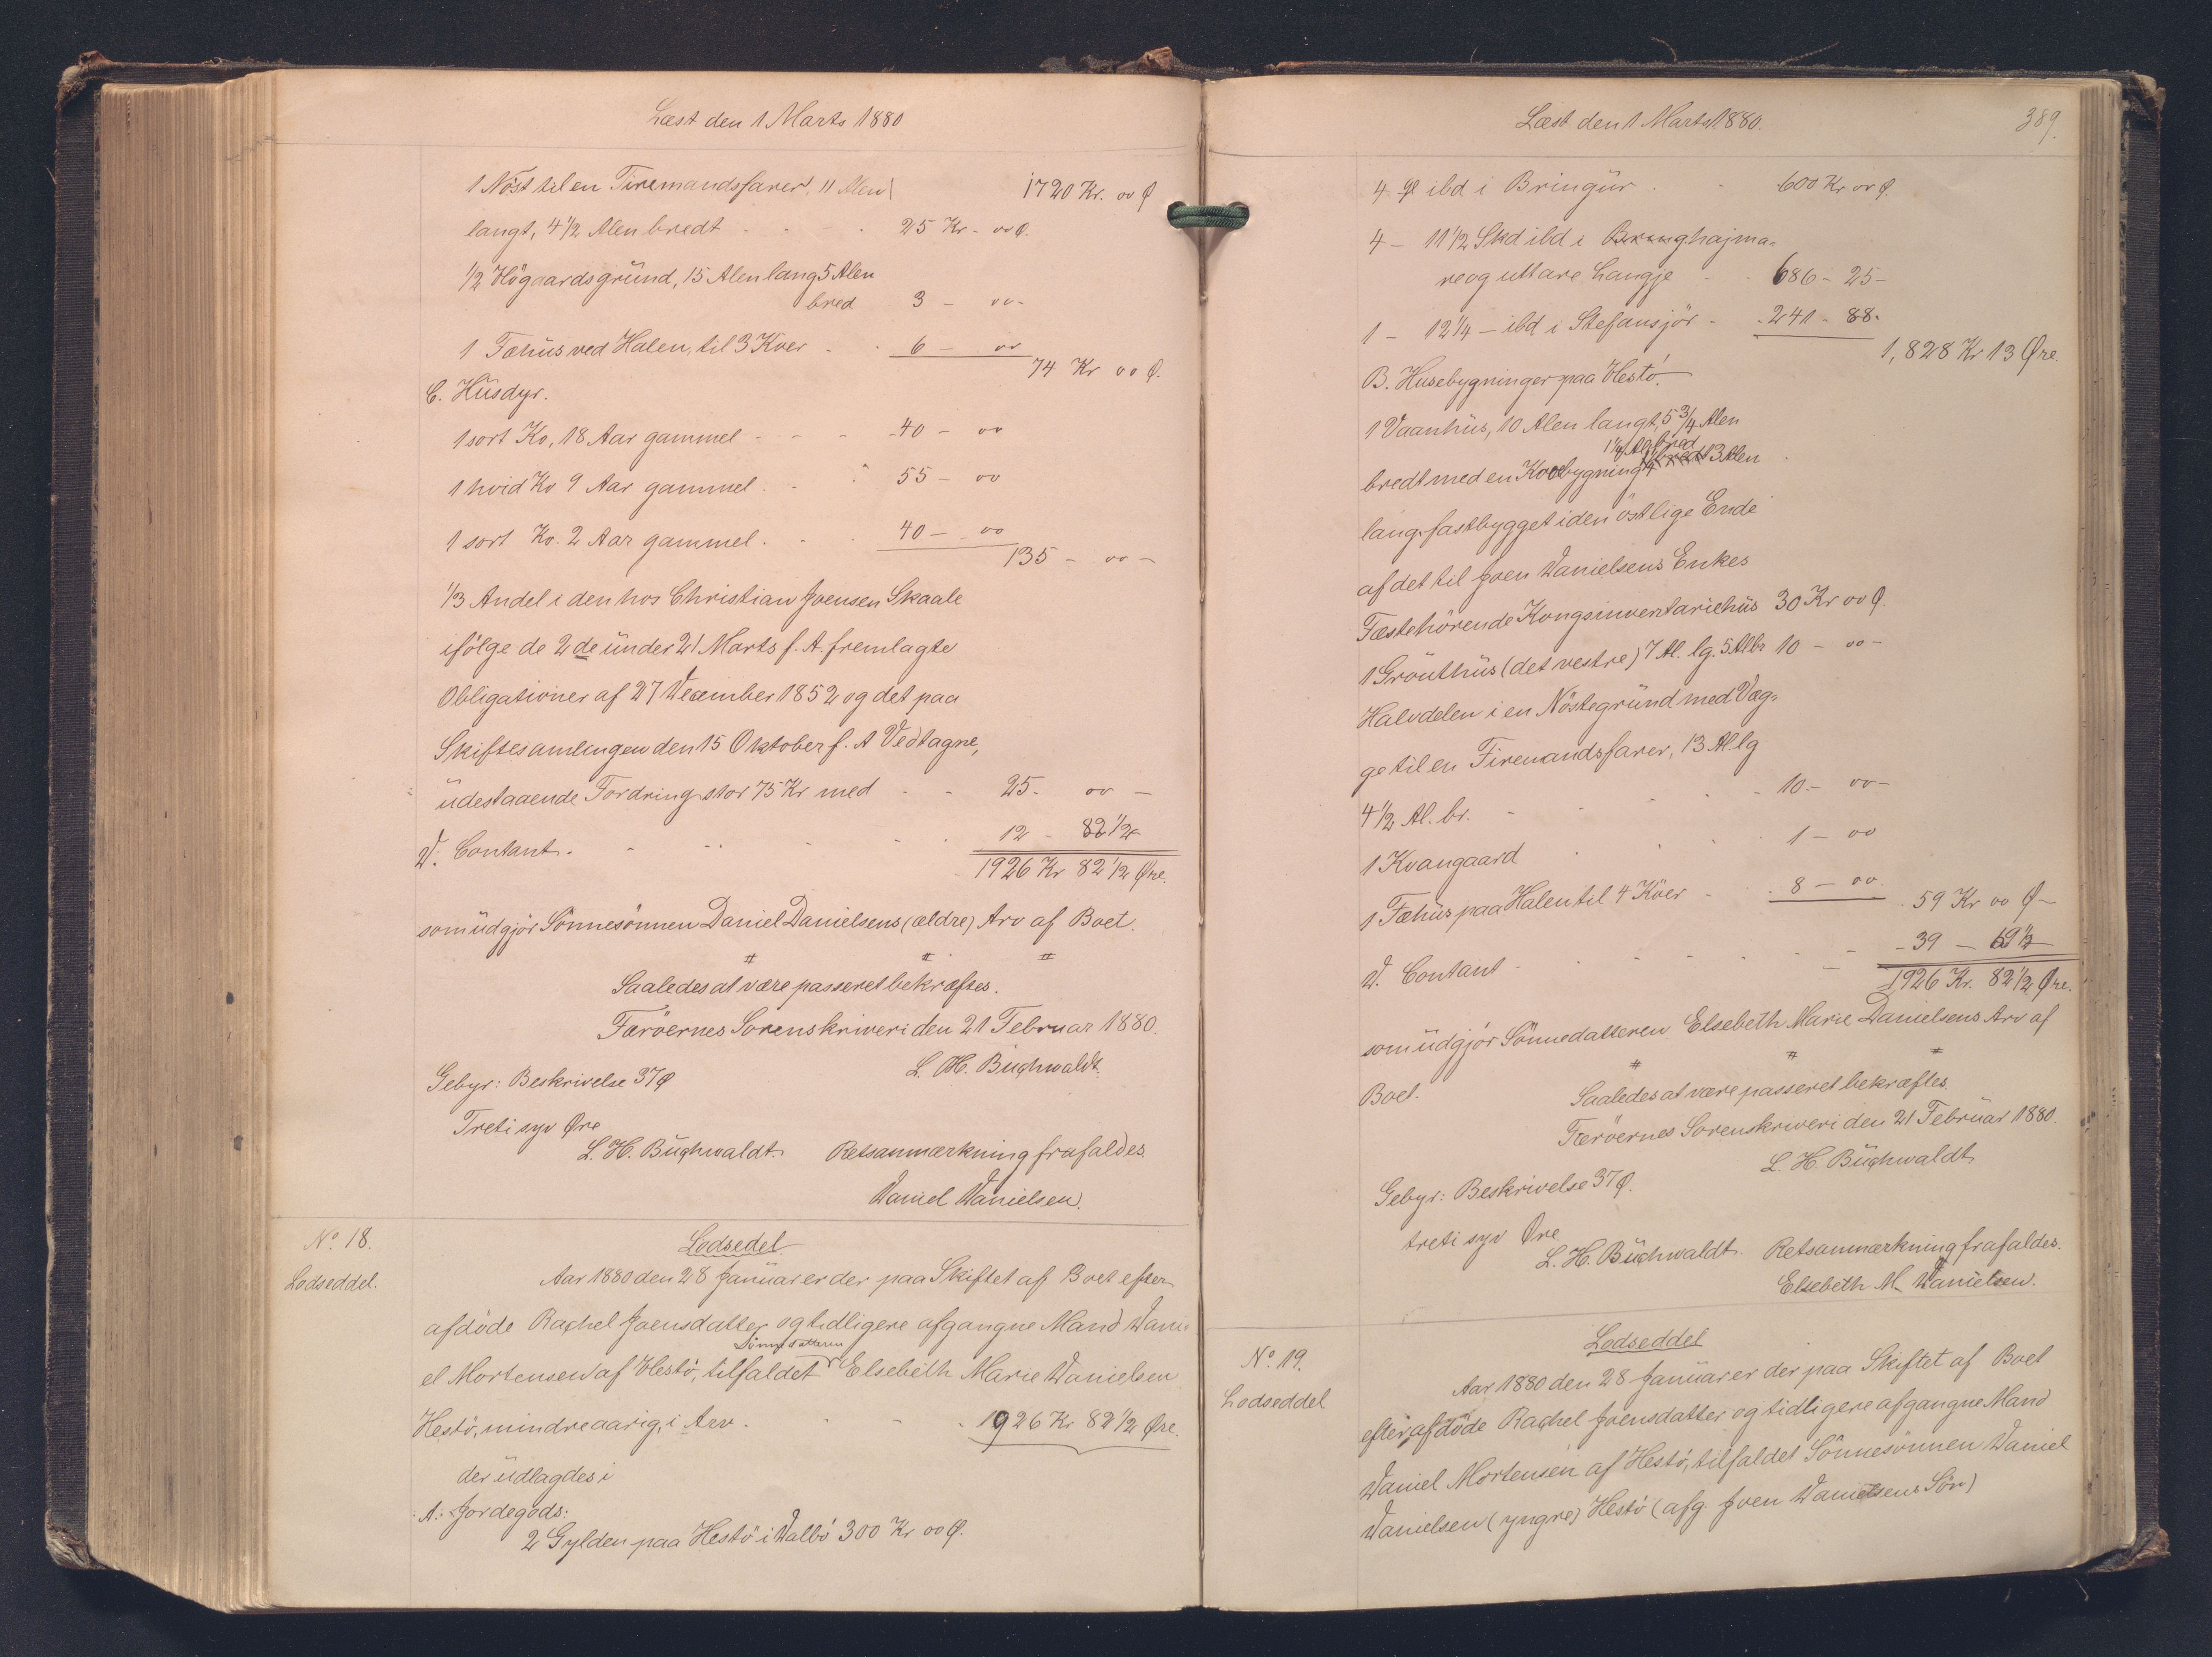 Læst den 1 Marts 1880
1 Nöst til en Firemandsfarer, 11 Alen 1720 Kr. 00 Ø
langt, 4 1/2 Alen bredt - - - 25 Kr - 00 Ø.
1/2 Högaardsgrund, 15 Alen lang 5 Alen
bred 3 - 00 -
1 Fæhus ved Halen, til 3 Køer - - 6 - 00
74 Kr 00 Ø.
C. Husdyr.
1 sort Ko, 18 Aar gammel - - - 40 - 00
1 hvid Ko 9 Aar gammel. - - 55 - 00
1 sort Ko. 2 Aar gammel. - - 40 - 00
135 - 00 -
1/3 Andel i den hos Christian Joensen Skaale
ifölge de 2de under 21 Marts f. A. fremlagte
Obligationer af 27 December 1852 og det paa
Skiftesamlingen den 15 Oktober f. A Vedtagne,
udestaaende Fordring stor 75 Kr med - - 25 - 00 -
D. Contant. - - - - - 12 - 82 1/2
1926 Kr 82 1/2 Øre.
som udgjör Sönnesönnen Daniel Danielsens (ældre) Arv af Boet.
Saaledes at være passeret bekræftes.
Færöernes Sorenskriveri den 21 Februar 1880.
L. H. Buchwaldt.
Gebyr: Beskrivelse 37 Ø
Treti syv Øre
L. H. Buchwaldt. Retsanmærkning frafaldes.
Daniel Danielsen.
No. 18.
Lodseddel.
Lodsedel
Aar 1880 den 28 Januar er der paa Skiftet af Boet efter
afdöde Rachel Joensdatter og tidligere afgangne Mand Dani
Sönnedatteren
el Mortensen af Hestö, tilfaldet Elsebeth Marie Danielsen
Hestö, mindreaarig, i Arv - - - 1926 Kr 82 1/2 Øre.
der udlagdes i
A: Jordegods:
2 Gylden paa Hestö i Dalbö 300 Kr 00 Ø.
Læst den 1 Marts 1880.
389.
4 gl ibd i Bringur - - 600 Kr 00 Ø.
4 - 11 1/2 Skd ibd i Brunghajma-
re og uttare Haugje - - 686 - 25 -
1 - 12 1/4 - ibd i Stefansjör - - 241 - 88 -
1,828 Kr 13 Øre.
B. Husebygninger paa Hestö.
1 Vaanhus, 10 Alen langt, 5 3/4 Alen
bredt med en Kovebygning 3 Alen
lang, fastbygget i den östlige Ende
af det til Joen Danielsens Enkes
Fæste hörende Kongsinventariehus 30 Kr 00 Ø.
1 Grönthus (det vestre) 7 Al. lg. 5 Al br 10 - 00 -
Halvdelen i en Nöstegrund med Væg-
ge til en Firemandsfarer, 13 Al. lg
4 1/2 Al. br. - - - - 10 - 00 -
1 Kvangaard - - - 1 - 00
1 Fæhus paa Halen til 4 Köer - - 8 - 00
59 Kr 00 Ø -
D. Contant - - - - - - 39 - 69 1/2 -
1926 Kr. 82 1/2 Øre.
som udgjör Sönnedatteren Elsebeth Marie Danielsens Arv af
Boet.
Saaledes at være passeret bekræftes.
Færöernes Sorenskriveri den 21 Februar 1880.
L. H. Buchwaldt
Gebyr: Beskrivelse 37 Ø.
treti syv Øre
L. H. Buchwaldt. Retsanmærkning frafaldes.
Elsebeth M. Danielsen.
No. 19.
Lodseddel
Lodseddel
Aar 1880 den 28 Januar er der paa Skiftet af Boet
efter afdöde Rachel Joensdatter og tidligere afgangne Mand
Daniel Mortensen af Hestö, tilfaldet Sönnesönnen Daniel
Danielsen (yngre) Hestö (afg. Joen Danielsens Sön)